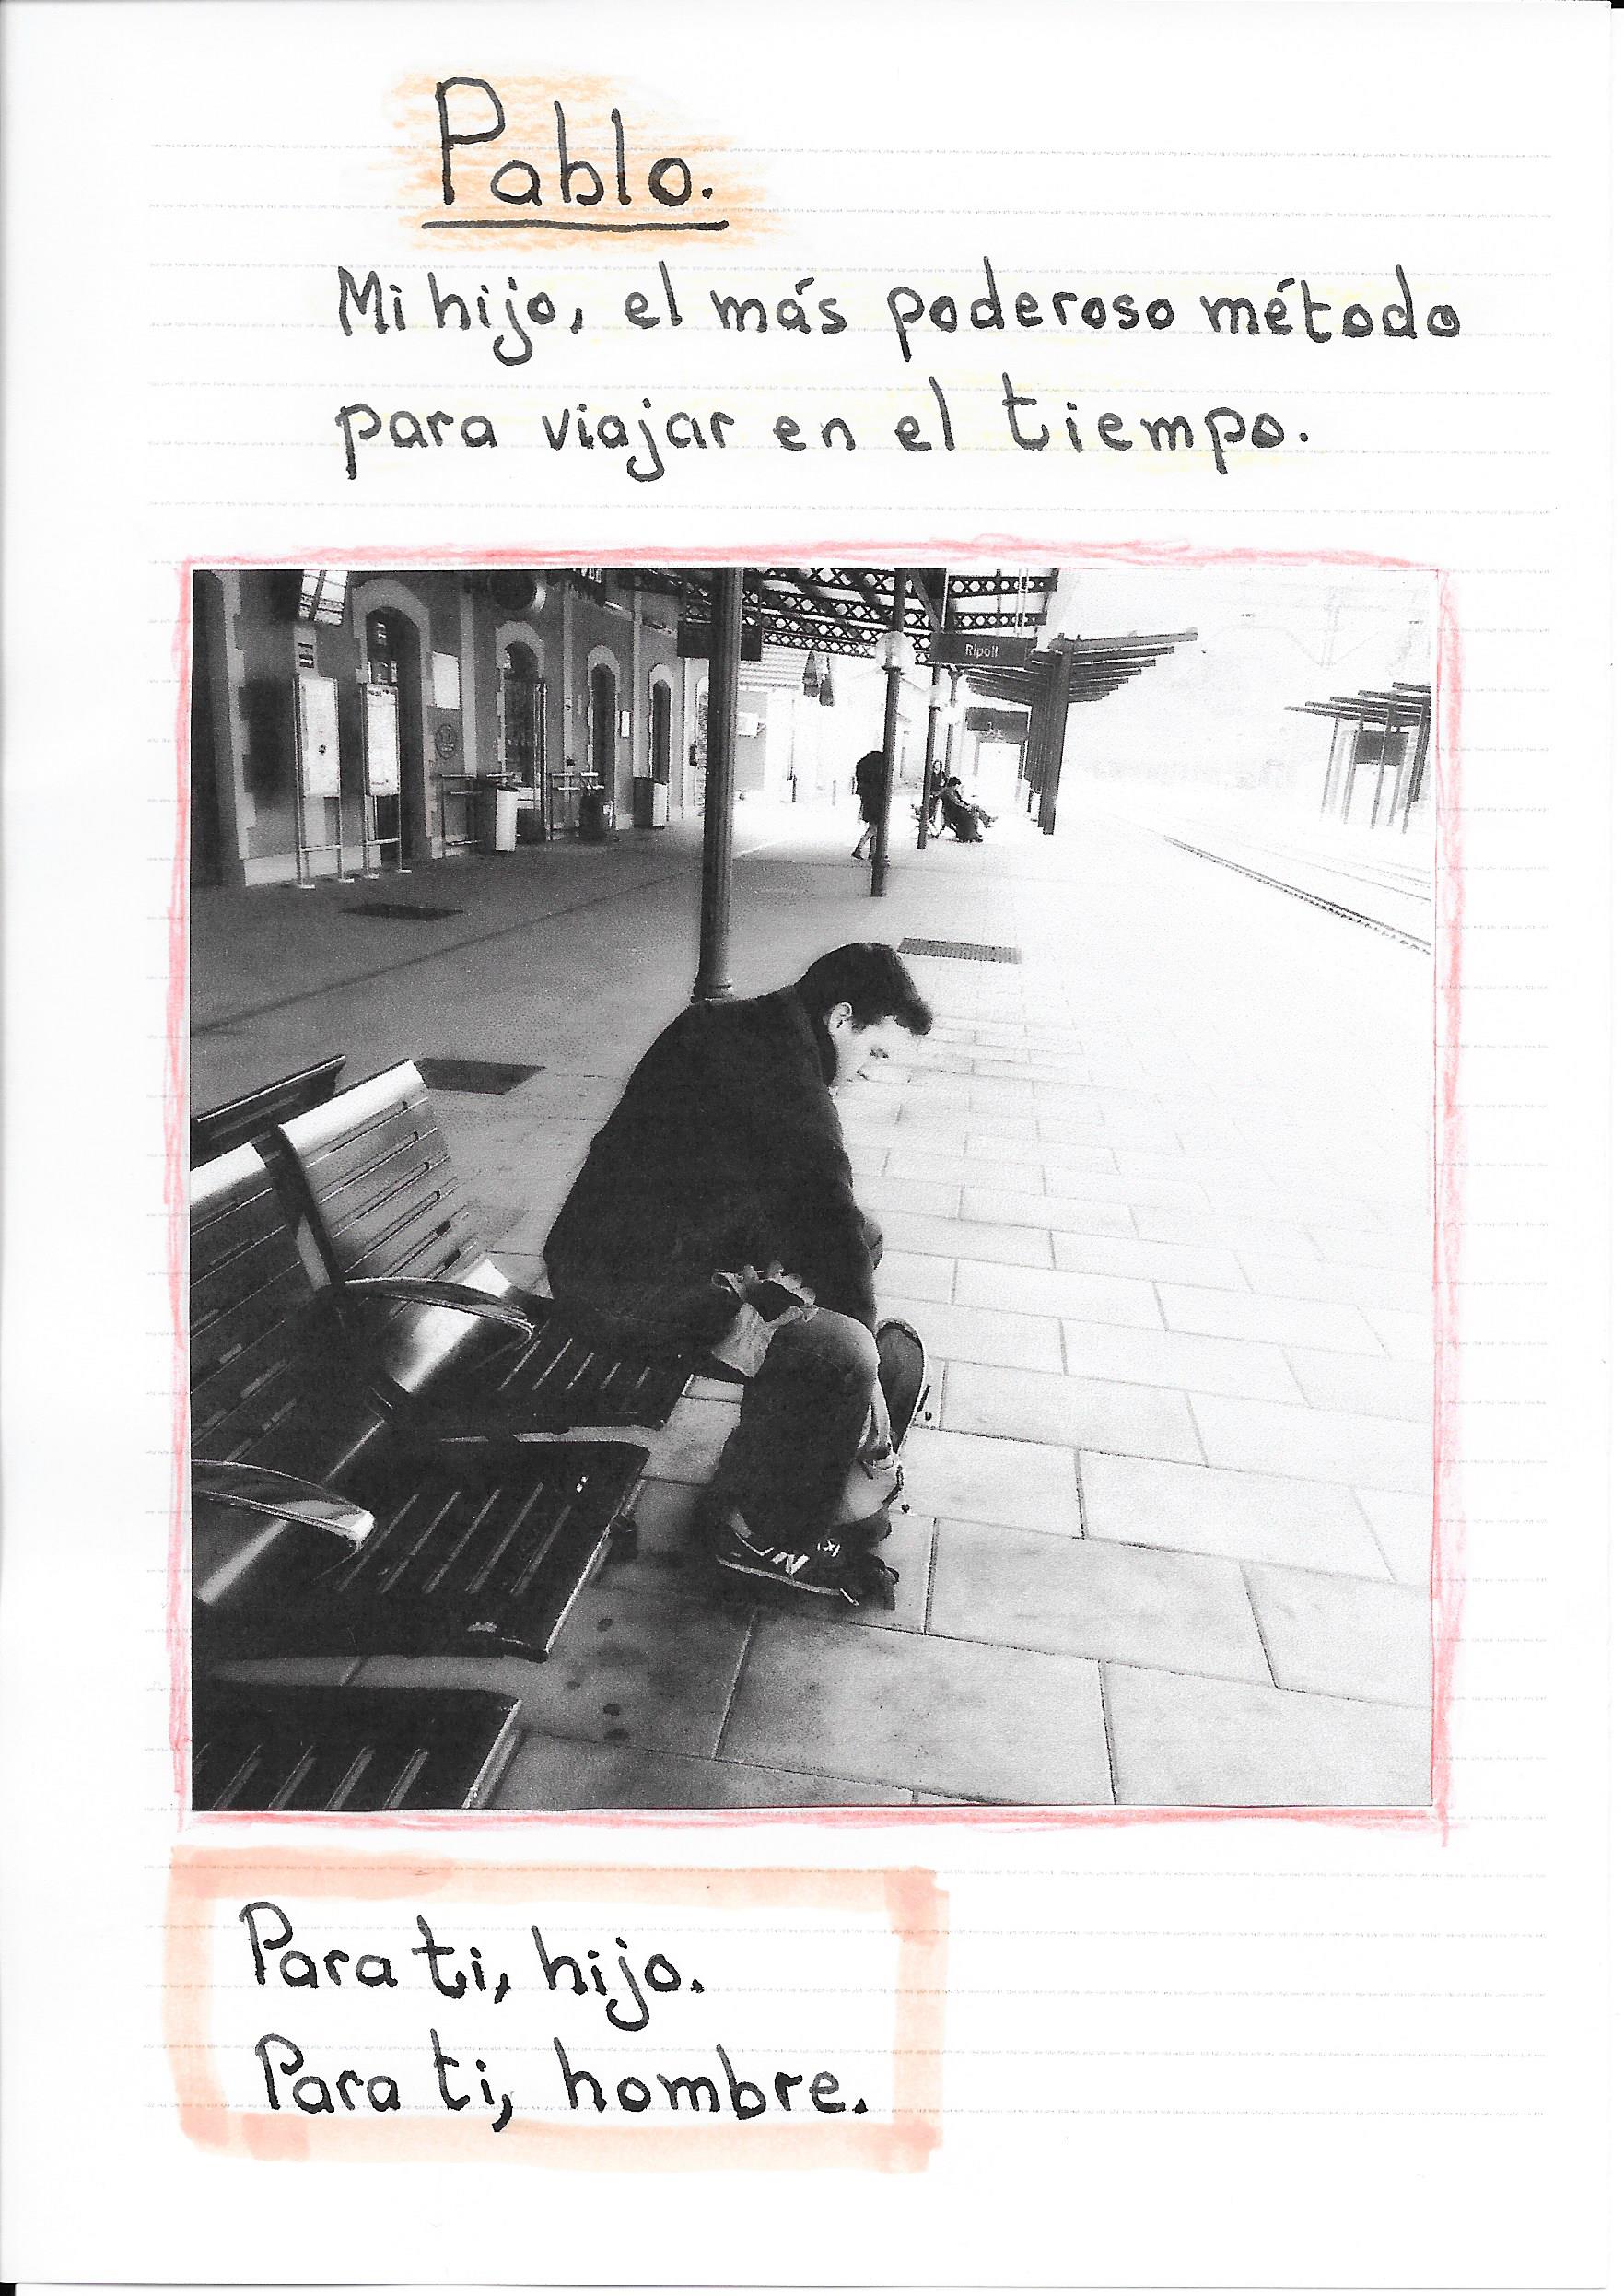 Pablo.
Mi hijo, el más poderoso método
para viajar en el tiempo.
Ripoll
Para ti, hijo.
Para ti, hombre.